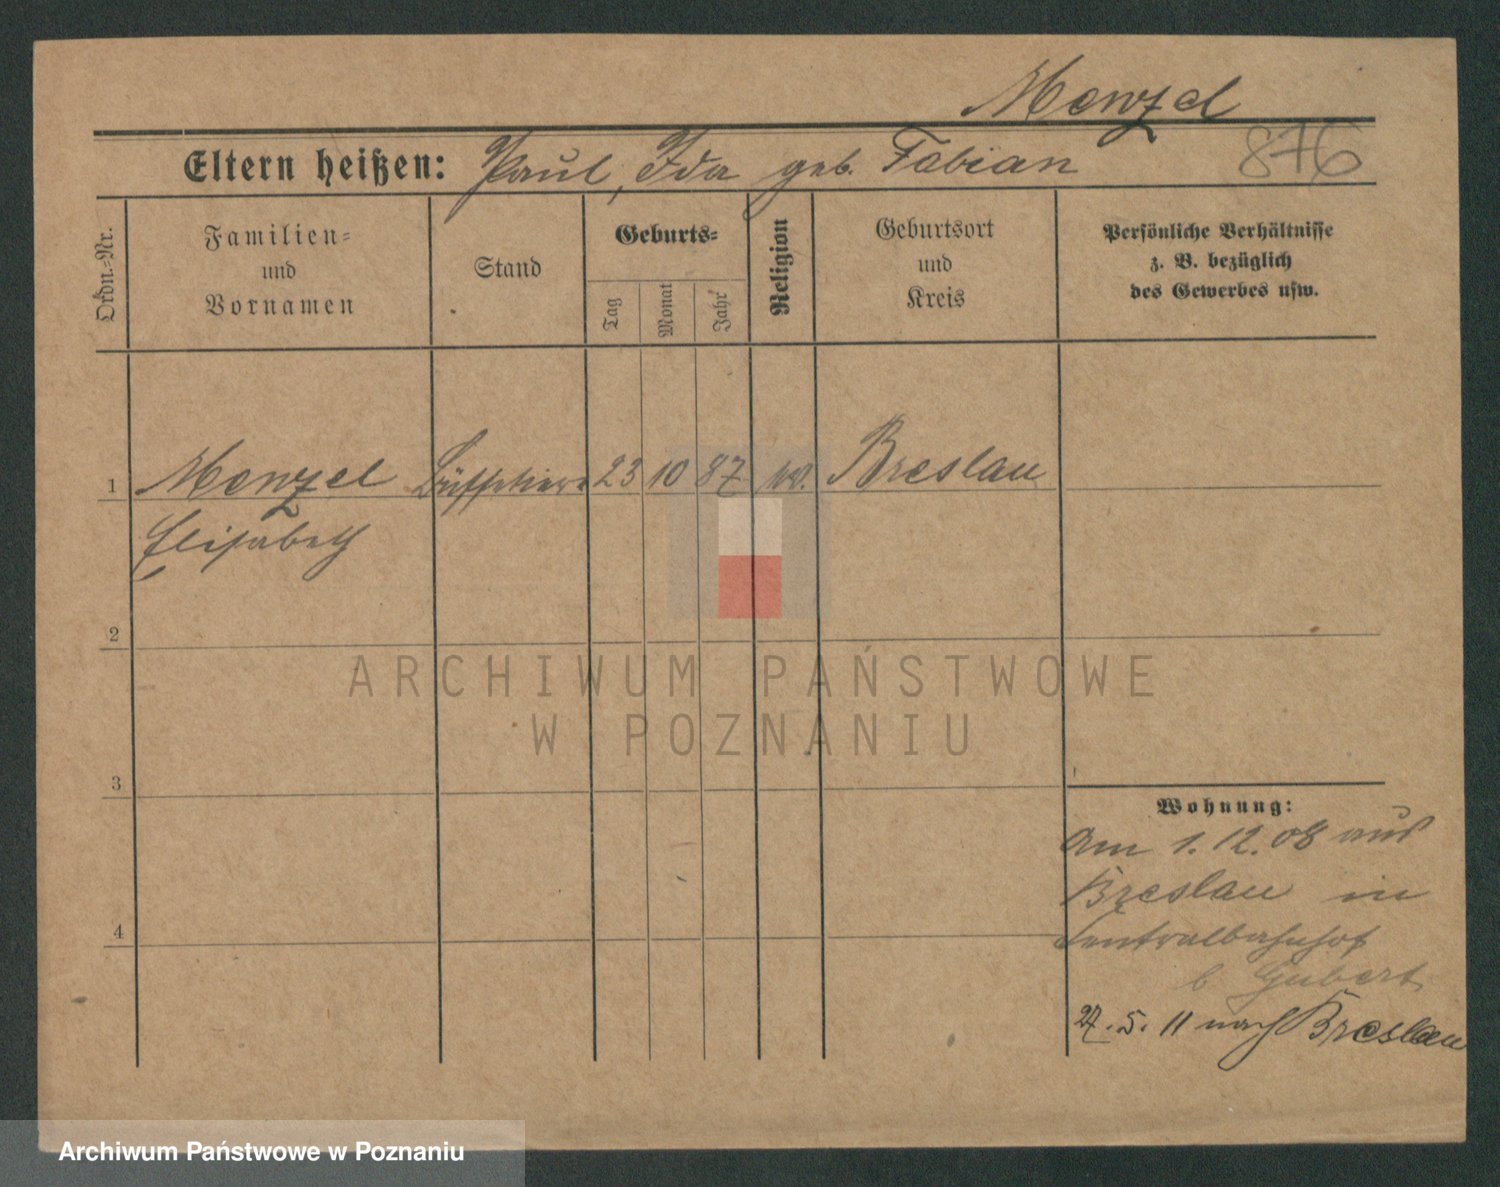 Menzel
876
Eltern heißen: Paul, Ida geb. Fabian
Ordn.-Nr.
Familien-
und
Vornamen
Stand
Geburts-
Tag
Monat
Jahr
Religion
Geburtsort
und
Kreis
Persönliche Verhältnisse
z. B. bezüglich
des Gewerbes usw.
1 Menzel 23 10 87 Breslau
Elisabeth
2
3
4
Wohnung:
Am 1.12.08 aus
Breslau in
Centralbahnhof
b Gubert
27.5.11 nach Breslau
ARCHIWUM PAŃSTWOWE
W POZNANIU
Archiwum Państwowe w Poznaniu